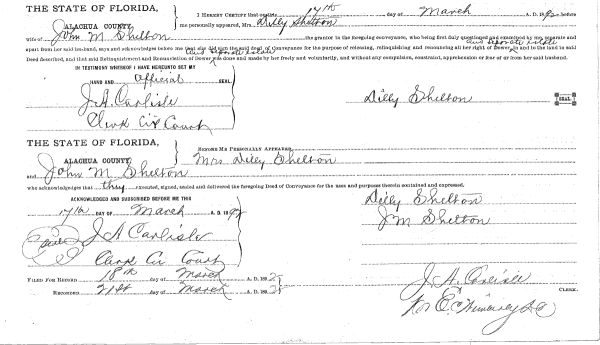 THE STATE OF FLORIDA, I HEREBY CERTIFY that on this 17th day of March A. D. 189 before
ALACHUA COUNTY. me personally appeared, Mrs. Dilly Shelton
wife of John M Shelton the grantor in the foregoing conveyance, who being first duly questioned and examined by me, separate and
apart from her said husband, says and acknowledges before me that she did sign the said deed of Conveyance for the purpose of releasing, relinquishing and renouncing all her right of Dower, in and to the land in said
Deed described, and that said Relinquishment and Renunciation of Dower was done and made by her freely and voluntarily, and without any compulsion, constraint, apprehension or fear of or from her said husband.
IN TESTIMONY WHEREOF I HAVE HEREUNTO SET MY
HAND AND Official SEAL
J. A. Carlisle Dilly Shelton SEAL
Clerk Cir Court
THE STATE OF FLORIDA, BEFORE ME PERSONALLY APPEARED
ALACHUA COUNTY. Mrs Dilly Shelton
and John M. Shelton
who acknowledges that they executed, signed, sealed and delivered the foregoing Deed of Conveyance for the uses and purposes therein contained and expressed.
ACKNOWLEDGED AND SUBSCRIBED BEFORE ME THIS Dilly Shelton
17th DAY OF March A. D. 189 J M Shelton
J A Carlisle
Clerk Cir Court
FILED FOR RECORD 18th day of March A. D. 189 J. A. Carlisle CLERK.
RECORDED 21st day of March A. D. 189